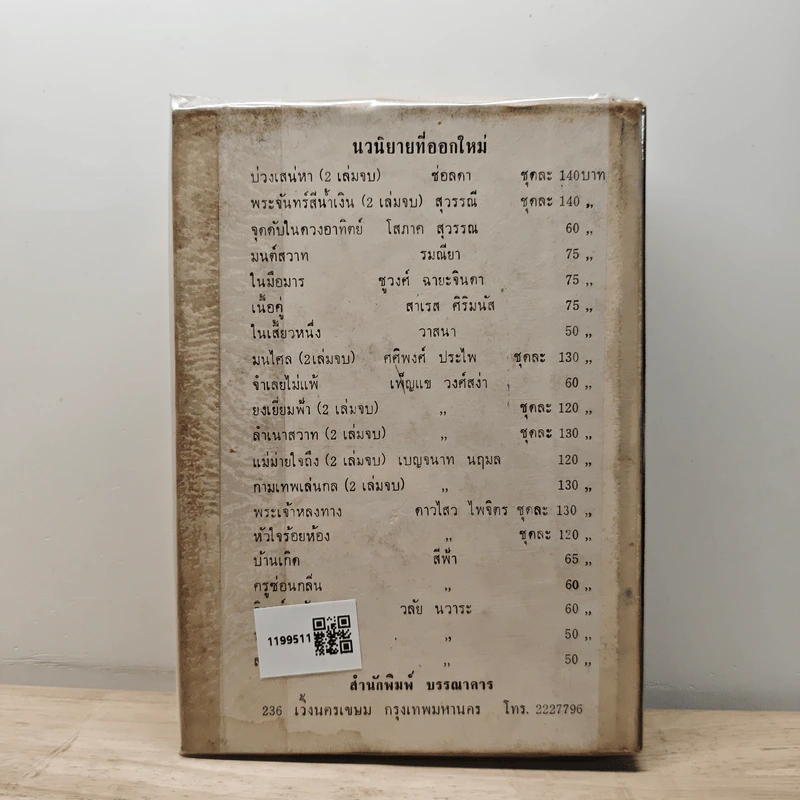 นวนิยายที่ออกใหม่
บ่วงเสน่หา (2 เล่มจบ) ช่อลดา ชุดละ 140 บาท
พระจันทร์สีน้ำเงิน (2 เล่มจบ) สุวรรณี ชุดละ 140 ,,
จุดดับในดวงอาทิตย์ โสภาค สุวรรณ 60 ,,
มนต์สวาท รมณียา 75 ,,
ในมือมาร ชูวงศ์ ฉายะจินดา 75 ,,
เนื้อคู่ สาเรส ศิริมนัส 75 ,,
ในเสี้ยวหนึ่ง วาสนา 50 ,,
มนไศล (2เล่มจบ) ศศิพงศ์ ประไพ ชุดละ 130 ,,
จำเลยไม่แพ้ เพ็ญแข วงศ์สง่า 60 ,,
ยงเยี่ยมฟ้า (2 เล่มจบ) ,, ชุดละ 120 ,,
ลำเนาสวาท (2 เล่มจบ) ,, ชุดละ 130 ,,
แม่ม่ายใจถึง (2 เล่มจบ) เบญจนาท นฤมล 120 ,,
กามเทพเล่นกล (2 เล่มจบ) ,, 130 ,,
พระเจ้าหลงทาง ดาวไสว ไพจิตร ชุดละ 130 ,,
หัวใจร้อยห้อง ,, ชุดละ 120 ,,
บ้านเกิด สีฟ้า 65 ,,
ครูซ่อนกลิ่น ,, 60 ,,
วลัย นวาระ 60 ,,
,, 50 ,,
,, 50 ,,
1199511
สำนักพิมพ์ บรรณาคาร
236 เวิ้งนครเขษม กรุงเทพมหานคร โทร. 2227796